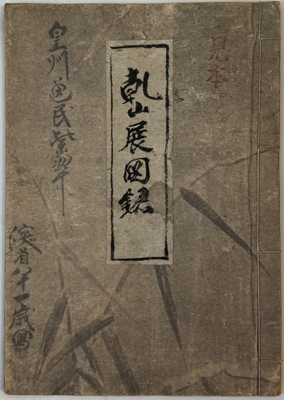 見本
乾山展図録
皇州
逸民紫翠
深省八十一歳画